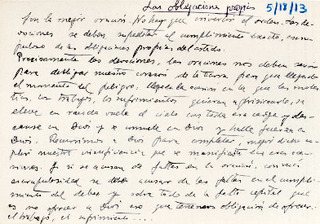 Las obligaciones propias 5/18/13
Son la mejor oración. No hay que invertir el orden. Las de-
vociones se deben supeditar al cumplimiento exacto, escru-
puloso de las obligaciones propias del estado.
Precisamente las devociones, las oraciones nos deben servir
para desligar nuestro corazón de la tierra, para que llegado
el momento del peligro, llegada la ocasión en que las moles-
tias, los trabajos, los sufrimientos quieran aprisionarle, se
eleve en raudo vuelo al cielo con toda esa carga y des-
canse en Dios y se consuele en Dios y halle fuerzas en
Dios. Recurrimos a Dios para completar, mejor dicho
nuestra insuficiencia que se manifiesta en cada mo-
mento. Y si se acusa de faltas en la oración, con
escrupulosidad, se debe acusar de las faltas en el cumpli-
miento del deber y sobre todo de la falta capital que
es no ofrecer a Dios eso que tenemos obligación de ofrecer.
el trabajo, el sufrimiento